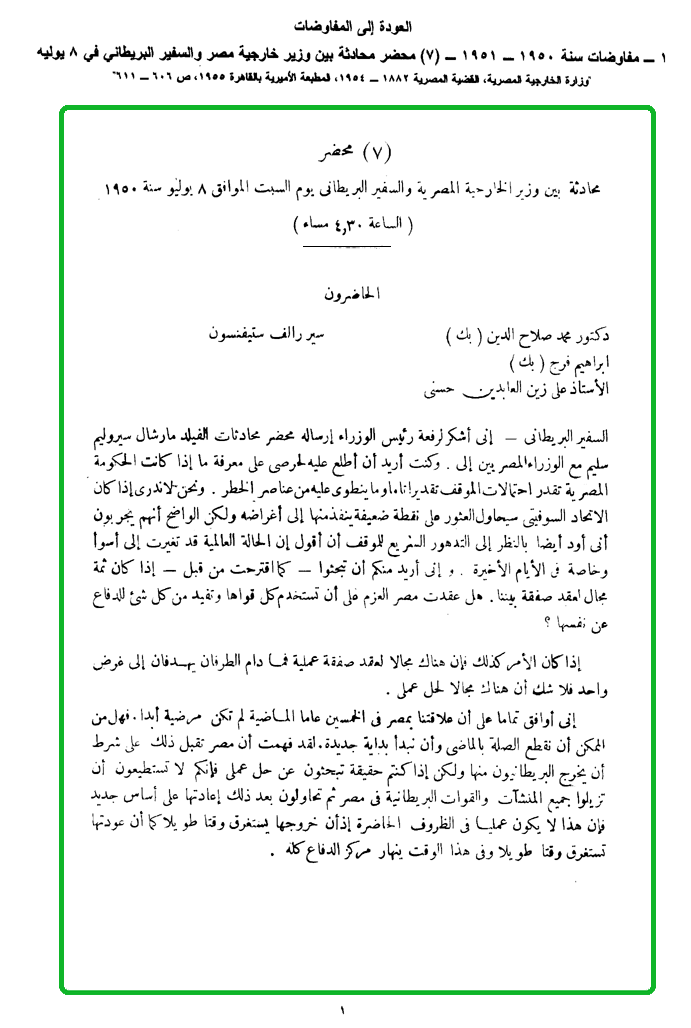 العودة إلى المفاوضات
١ ــ مفاوضات سنة ١٩٥٠ ــ ١٩٥١ ــ (٧) محضر محادثة بين وزير خارجية مصر والسفير البريطاني في ٨ يوليه
"وزارة الخارجية المصرية، القضية المصرية ١٨٨٢ ــ ١٩٥٤، المطبعة الأميرية بالقاهرة ١٩٥٥، ص ٦٠٦ ــ ٦١١"
(٧) محضر
محادثة بين وزير الخارجية المصرية والسفير البريطانى يوم السبت الموافق ٨ يوليو سنة ١٩٥٠
( الساعة ٤,٣٠ مساء )
الحاضرون
دكتور محمد صلاح الدين ( بك ) سير رالف ستيفنسون
ابراهيم فرج ( بك )
الأستاذ على زين العابدين حسنى
السفير البريطانى – إنى أشكر لرفعة رئيس الوزراء إرساله محضر محادثات الفيلد مارشال سير وليم
سليم مع الوزراء المصريين إلى . وكنت أريد أن أطلع عليه لحرصى على معرفة ما إذا كانت الحكومة
المصرية تقدر احتمالات الموقف تقديرا تاما وما ينطوى عليه من عناصر الخطر . ونحن لا ندرى إذا كان
الاتحاد السوفيتى سيحاول العثور على نقطة ضعيفة ينفذ منها إلى أغراضه ولكن الواضح أنهم يجربون
أنى أود أيضا بالنظر إلى التدهور السريع للموقف أن أقول إن الحالة العالمية قد تغيرت إلى أسوأ
وخاصة فى الأيام الأخيرة . و إنى أريد منكم أن تبحثوا – كما اقترحت من قبل – إذا كان ثمة
مجال لعقد صفقة بيننا . هل عقدت مصر العزم على أن تستخدم كل قواها وتفيد من كل شئ للدفاع
عن نفسها ؟
إذا كان الأمر كذلك فإن هناك مجالا لعقد صفقة عملية فما دام الطرفان يهدفان إلى غرض
واحد فلا شك أن هناك مجالا لحل عملى .
إنى أوافق تماما على أن علاقتنا بمصر فى الخمسين عاما الماضية لم تكن مرضية أبدا . فهل من
الممكن أن نقطع الصلة بالماضى وأن نبدأ بداية جديدة . لقد فهمت أن مصر تقبل ذلك على شرط
أن يخرج البريطانيون منها ولكن إذا كنتم حقيقة تبحثون عن حل عملى فإنكم لا تستطيعون أن
تزيلوا جميع المنشآت والقوات البريطانية فى مصر ثم تحاولون بعد ذلك إعادتها على أساس جديد
فإن هذا لا يكون عمليا فى الظروف الحاضرة إذ أن خروجها يستغرق وقتا طويلا كما أن عودتها
تستغرق وقتا طويلا وفى هذا الوقت ينهار مركز الدفاع كله .
١